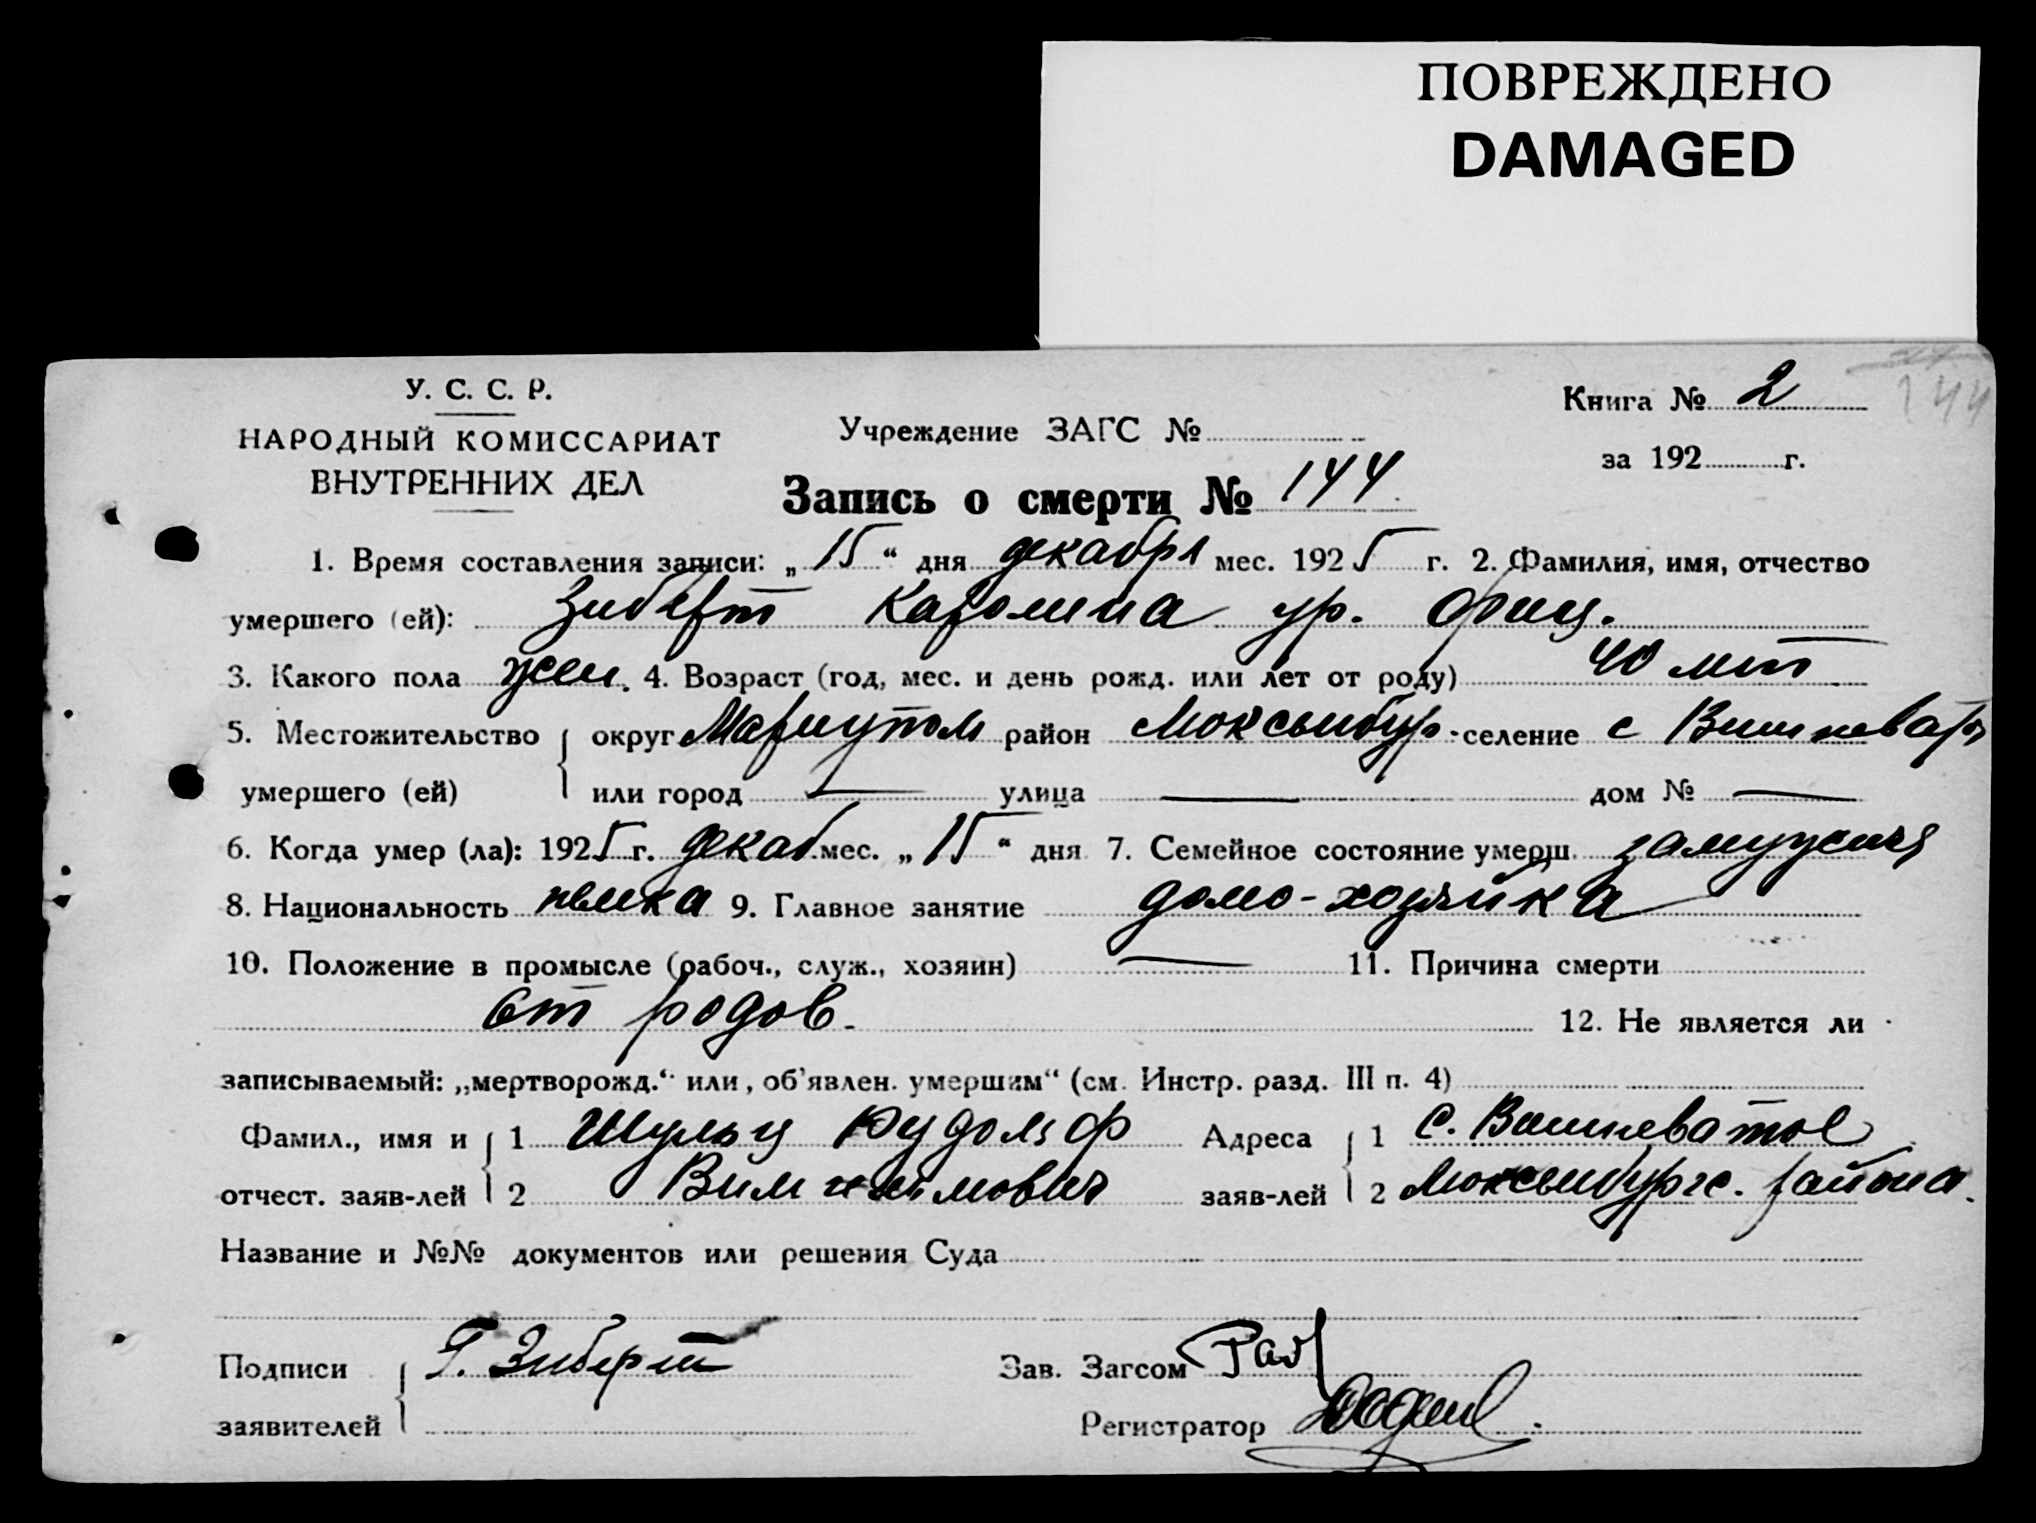 ПОВРЕЖДЕНО
DAMAGED
У. С. С. Р.
НАРОДНЫЙ КОМИССАРИАТ
ВНУТРЕННИХ ДЕЛ
Учреждение ЗАГС №
Книга № 2
за 192 г.
244
Запись о смерти № 144
1. Время составления записи: „15“ дня декабря мес. 1925 г. 2. Фамилия, имя, отчество
умершего (ей): Зиберт Каролина ур. Фриц.
3. Какого пола жен. 4. Возраст (год, мес. и день рожд. или лет от роду) 40 лет
5. Местожительство округ Мариупол район Люксембур. селение с Вишневат
умершего (ей) или город — улица — дом № —
6. Когда умер (ла): 1925 г. декаб. мес. „15“ дня 7. Семейное состояние умерш. замужняя
8. Национальность немка 9. Главное занятие домо-хозяйка
10. Положение в промысле (рабоч., служ., хозяин) — 11. Причина смерти
от родов. 12. Не является ли
записываемый: „мертворожд.“ или „об'явлен. умершим“ (см. Инстр. разд. III п. 4)
Фамил., имя и 1 Шульц Рудольф Адреса 1 с. Вишневатое
отчест. заяв-лей 2 Вильгельмович заяв-лей 2 Люксембургс. района.
Название и №№ документов или решения Суда
Подписи Г. Зиберт Зав. Загсом
заявителей Регистратор